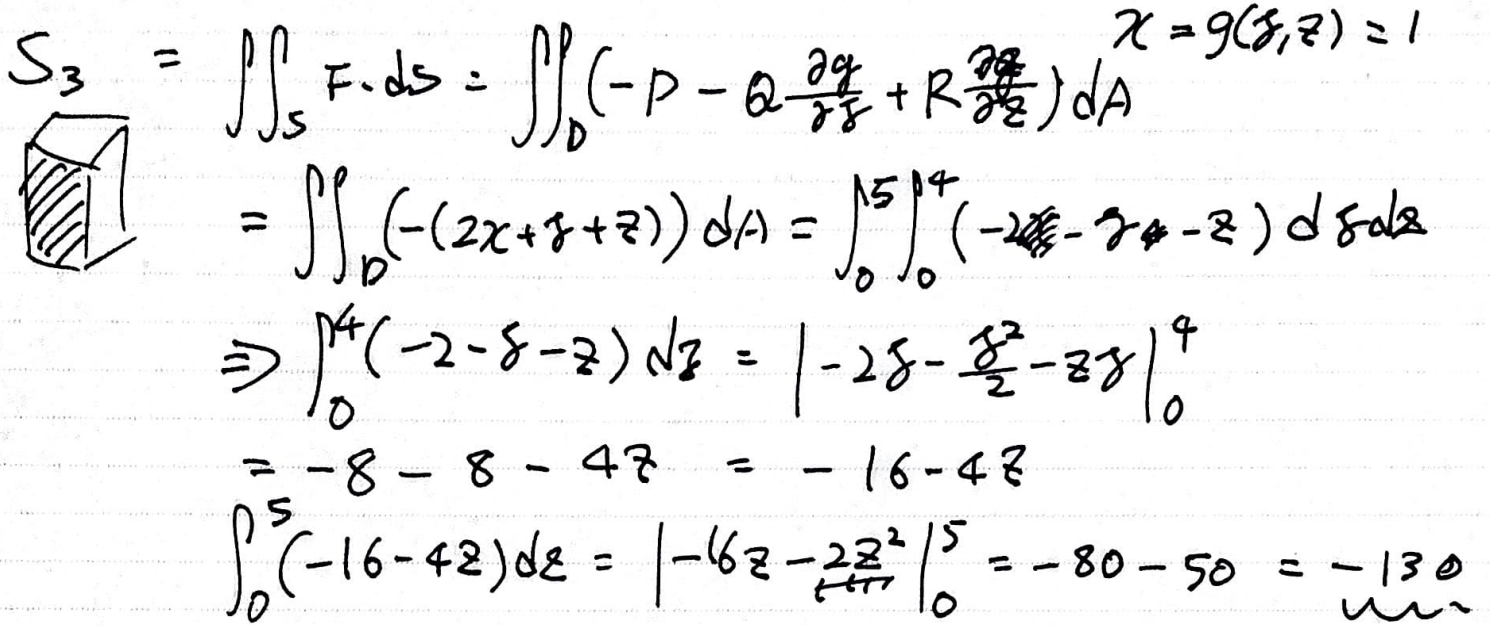 x = g(y,z) = 1
S₃ = ∬_S F·dS = ∬_D (-P - Q ∂g/∂y + R ∂g/∂z) dA
= ∬_D (-(2x+y+z)) dA = ∫₀⁵ ∫₀⁴ (-2 - y - z) dy dz
⇒ ∫₀⁴ (-2 - y - z) dy = | -2y - y²/2 - zy |₀⁴
= -8 - 8 - 4z = -16 - 4z
∫₀⁵ (-16 - 4z) dz = | -16z - 2z² |₀⁵ = -80 - 50 = -130